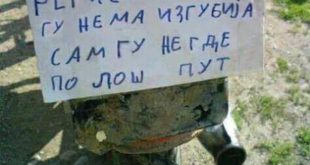 ГУ НЕМА ИЗГУБИЈА
САМ ГУ НЕГДЕ
ПО ЛОШ ПУТ